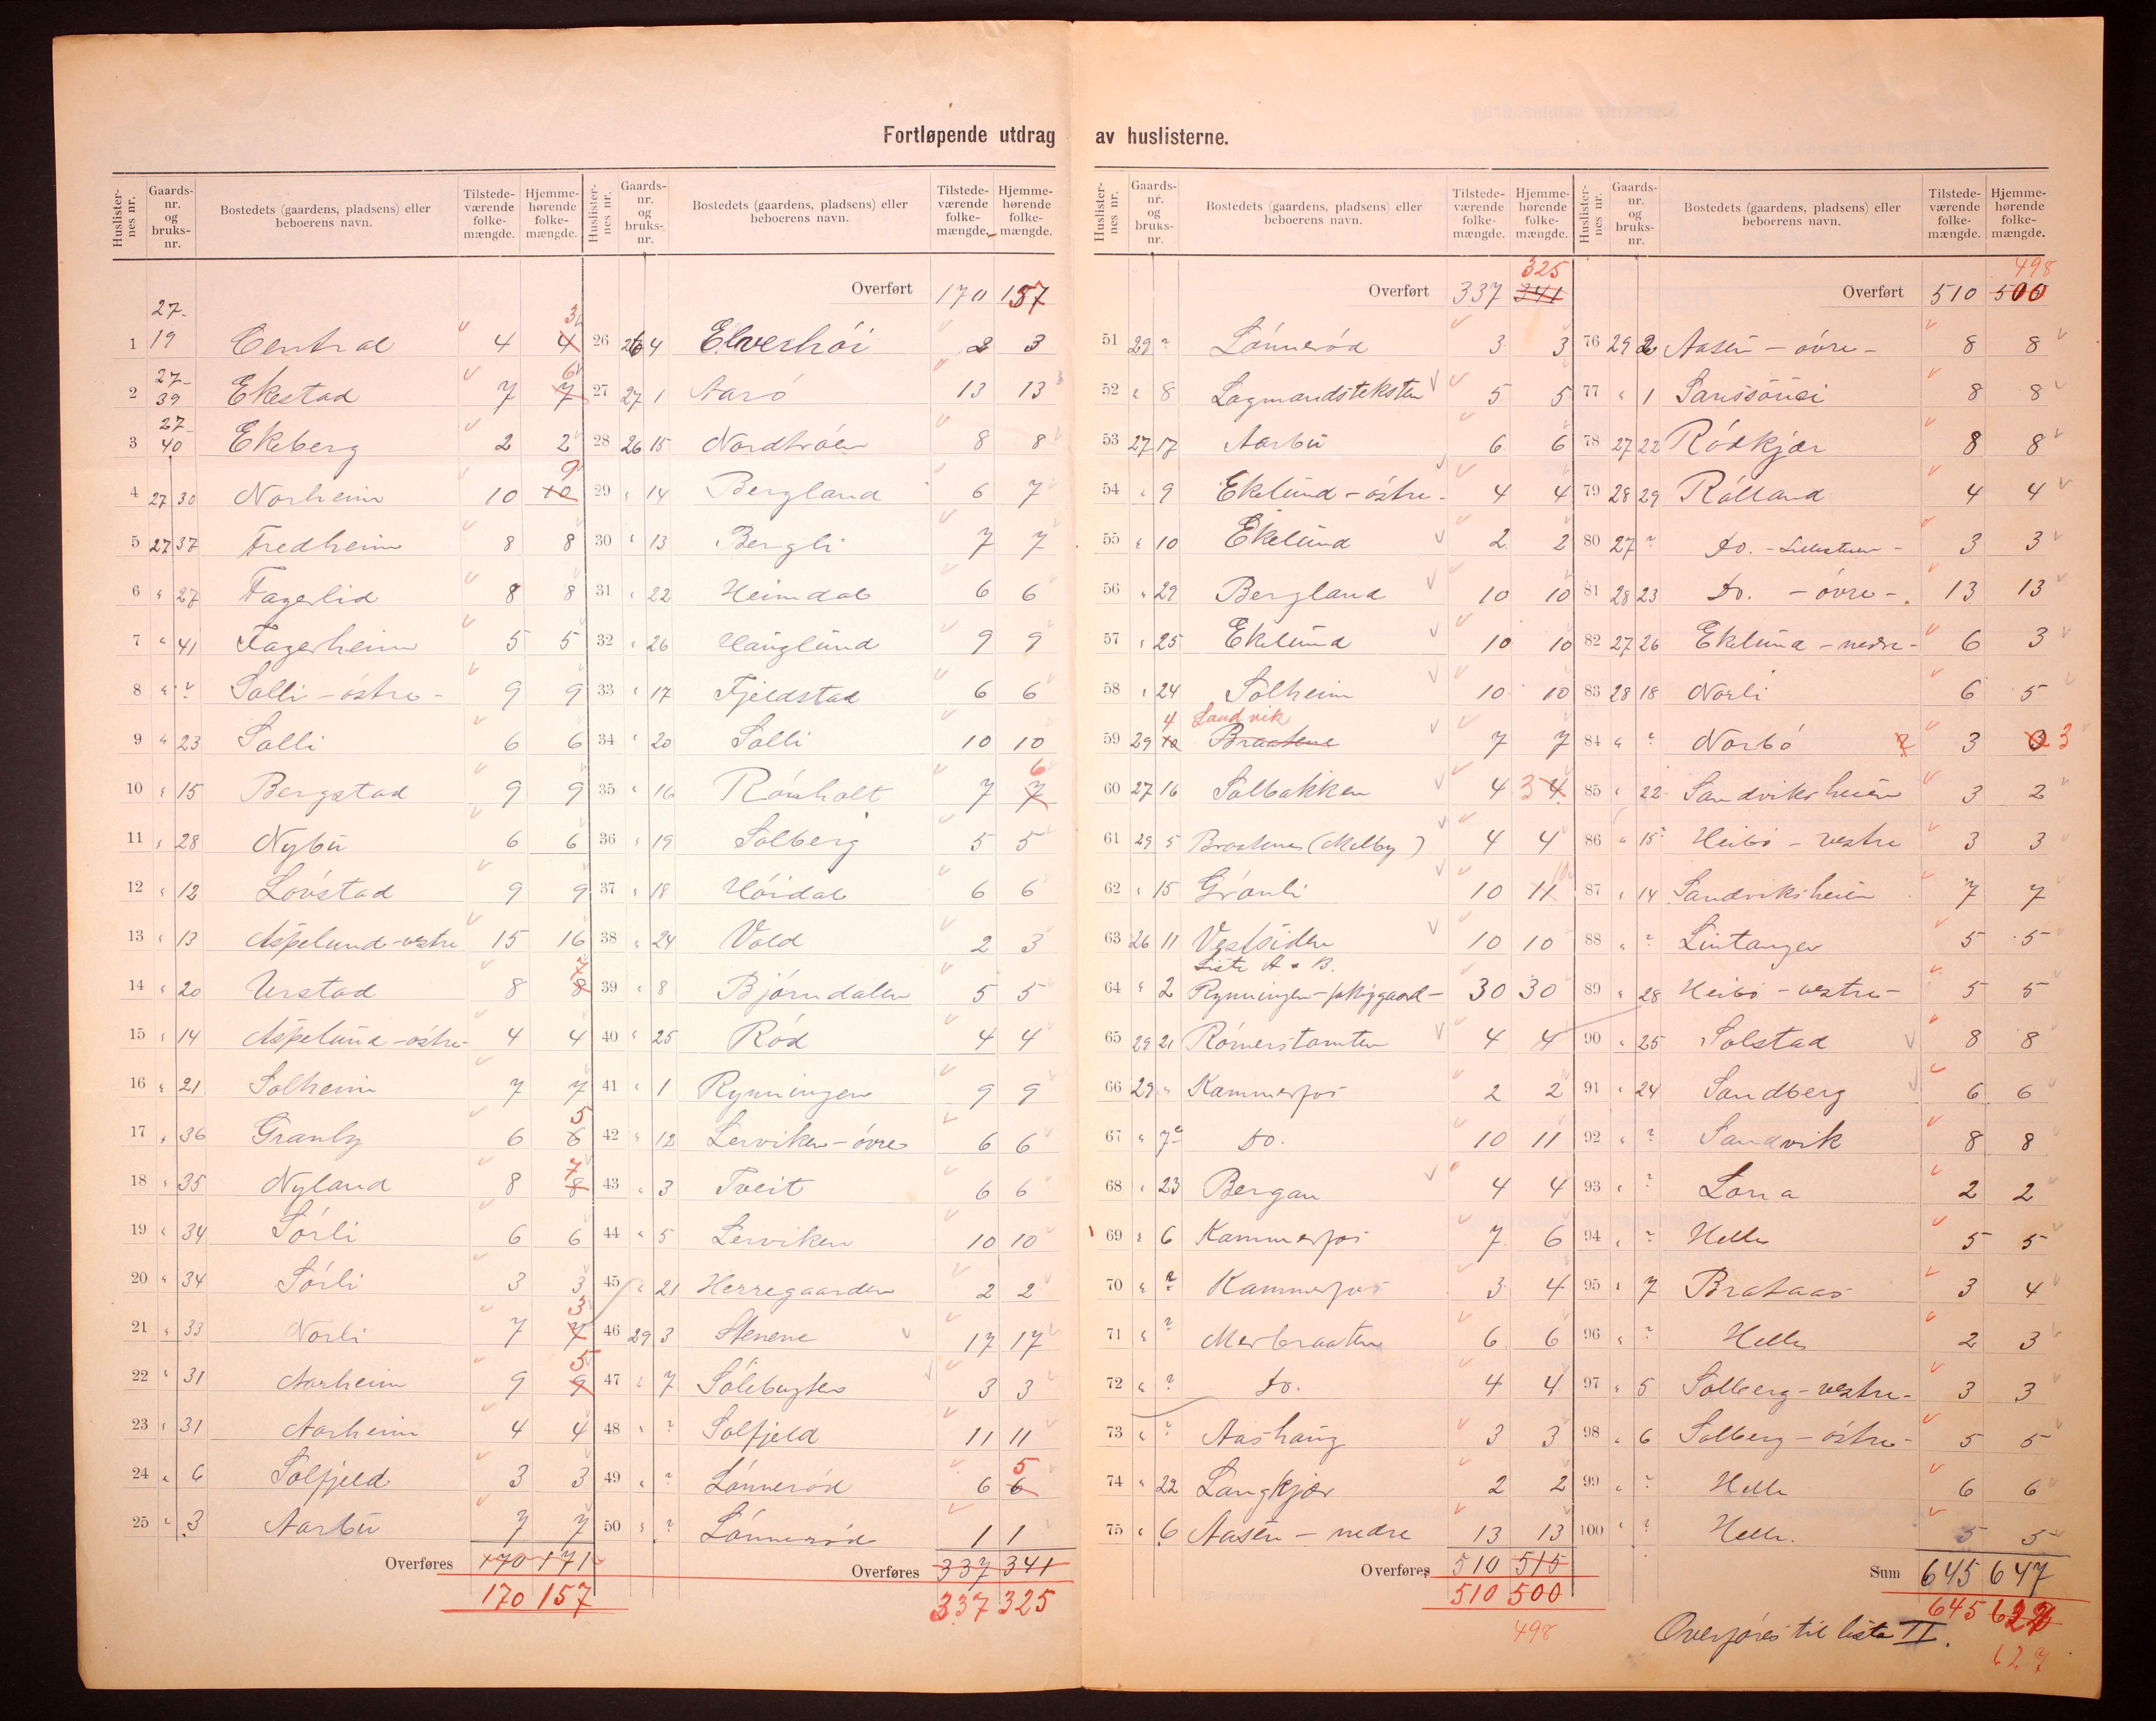 Fortløpende utdrag av huslisterne.
Huslister-nes nr. Gaards-nr. og bruks-nr. Bostedets (gaardens, pladsens) eller beboerens navn. Tilstede-værende folke-mængde. Hjemme-hørende folke-mængde.
27-
1 19 Central 4 4 3
2 27-39 Ekestad 7 7 6
3 27-40 Ekeberg 2 2
4 27 30 Norheim 10 10 9
5 27 37 Fredheim 8 8
6 " 27 Fagerlid 8 8
7 " 41 Fagerheim 5 5
8 " ? Solli - östre - 9 9
9 " 23 Solli 6 6
10 " 15 Bergstad 9 9
11 " 28 Nybu 6 6
12 " 12 Lövstad 9 9
13 " 13 Aspelund - vestre 15 16
14 " 20 Urstad 8 8 7
15 " 14 Aspelund - östre - 4 4
16 " 21 Solheim 7 7
17 " 36 Granly 6 6 5
18 " 35 Nyland 8 8 7
19 " 34 Sörli 6 6
20 " 34 Sörli 3 3
21 " 33 Norli 7 7 3
22 " 31 Aarheim 9 9 5
23 " 31 Aarheim 4 4
24 " 6 Solfjeld 3 3
25 " 3 Aarbu 7 7
Overføres 170 171
170 157
Huslister-nes nr. Gaards-nr. og bruks-nr. Bostedets (gaardens, pladsens) eller beboerens navn. Tilstede-værende folke-mængde. Hjemme-hørende folke-mængde.
Overført 170 157
26 26 4 Elverhöi 2 3
27 27 1 Aarö 13 13
28 26 15 Nordtröen 8 8
29 " 14 Bergland 6 7
30 " 13 Bergli 7 7
31 " 22 Heimdal 6 6
32 " 26 Hauglund 9 9
33 " 17 Fjeldstad 6 6
34 " 20 Solli 10 10
35 " 16 Rönholt 7 7 6
36 " 19 Solberg 5 5
37 " 18 Höidal 6 6
38 " 24 Vold 2 3
39 " 8 Björndalen 5 5
40 " 25 Röd 4 4
41 " 1 Rynningen 9 9
42 " 12 Lerviken - övre 6 6
43 " 3 Tveit 6 6
44 " 5 Lerviken 10 10
45 " 21 Herregaarden 2 2
46 29 3 Stenene 17 17
47 " 7 Sölebugten 3 3
48 " ? Solfjeld 11 11
49 " ? Lönneröd 6 6 5
50 " ? Lönneröd 1 1
Overføres 337 341
337 325
Huslister-nes nr. Gaards-nr. og bruks-nr. Bostedets (gaardens, pladsens) eller beboerens navn. Tilstede-værende folke-mængde. Hjemme-hørende folke-mængde.
325
Overført 337 341
51 29 ? Lönneröd 3 3
52 " 8 Lagmandsteksten 5 5
53 27 17 Aarbu 6 6
54 " 9 Ekelund - östre - 4 4
55 " 10 Ekelund 2 2
56 " 29 Bergland 10 10
57 " 25 Ekelund 10 10
58 " 24 Solheim 10 10
4 Sandvik
59 29 10 Braatene 7 7
60 27 16 Solbakken 4 3 4
61 29 5 Braatene (Melby) 4 4
62 " 15 Grönli 10 11 10
63 26 11 Vestsiden 10 10
Liste A & B.
64 " 2 Rynningen 30 30
65 29 21 Römerstomten 4 4
66 29 " Kammerfos 2 2
67 " 7 do. 10 11
68 " 23 Bergan 4 4
69 " 6 Kammerfos 7 6
70 " ? Kammerfos 3 4
71 " ? Merbraaten 6 6
72 " ? do. 4 4
73 " ? Aashaug 3 3
74 " 22 Langkjær 2 2
75 " 6 Aasen - nedre 13 13
Overføres 510 515
510 500
498
Huslister-nes nr. Gaards-nr. og bruks-nr. Bostedets (gaardens, pladsens) eller beboerens navn. Tilstede-værende folke-mængde. Hjemme-hørende folke-mængde.
498
Overført 510 500
76 29 2 Aasen - övre - 8 8
77 " 1 Sanssouci 8 8
78 27 22 Rödkjær 8 8
79 28 29 Rölland 4 4
80 27 ? do. - - 3 3
81 28 23 do. - övre - 13 13
82 27 26 Ekelund - nedre - 6 3
83 28 18 Norli 6 5
84 " ? Norbö 3 3
85 " 22 Sandviksheien 3 2
86 " 15? Heibö - vestre 3 3
87 " 14 Sandviksheien 7 7
88 " ? Lintangen 5 5
89 " 28 Heibö - vestre - 5 5
90 " 25 Solstad 8 8
91 " 24 Sandberg 6 6
92 " ? Sandvik 8 8
93 " ? Lona 2 2
94 " ? Helle 5 5
95 " 7 Brataas 3 4
96 " ? Helle 2 3
97 " 5 Solberg - vestre - 3 3
98 " 6 Solberg - östre - 5 5
99 " ? Helle 6 6
100 " ? Helle. 5 5
Sum 645 647
645
627
Overföres til liste II.